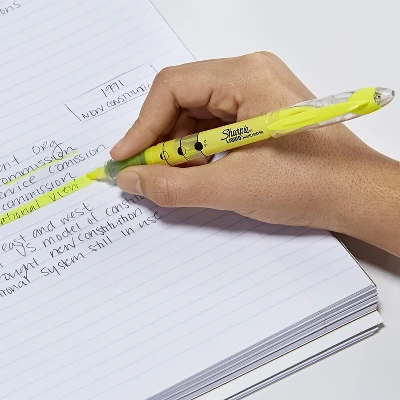 ons
1991
NON CONSTITUTIO
ent org
commission
service comission
commission
national view
east and west
's model of consti
ought new constitution
tional system still in use
Sharpie
LIQUID